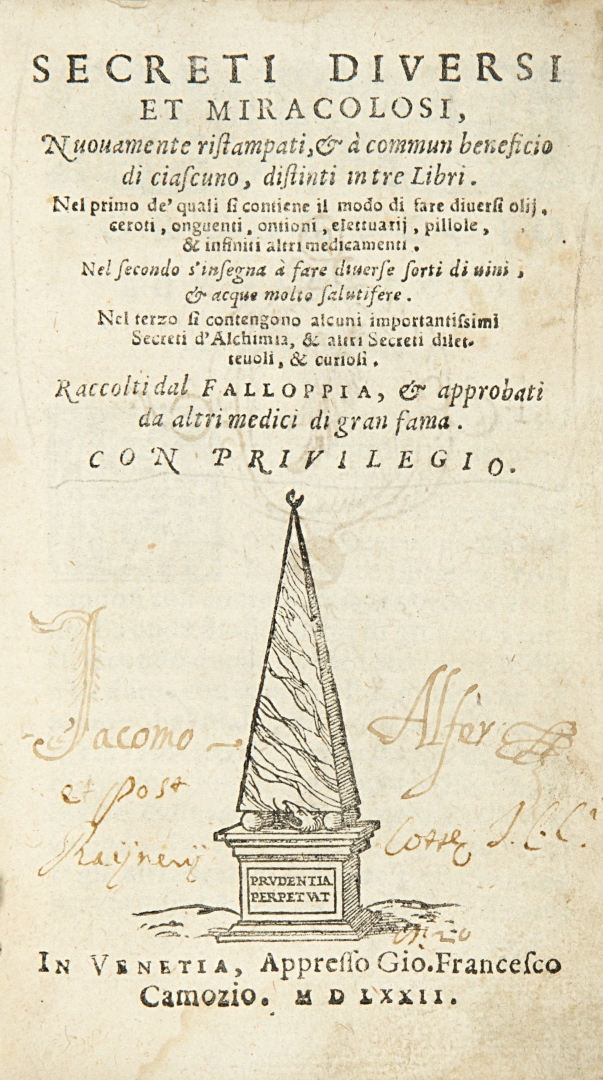 SECRETI DIVERSI
ET MIRACOLOSI,
Nuouamente ristampati, & à commun beneficio
di ciascuno, distinti in tre Libri.
Nel primo de' quali si contiene il modo di fare diuersi olij,
ceroti, onguenti, ontioni, elettuarij, pillole,
& infiniti altri medicamenti.
Nel secondo s'insegna à fare diuerse sorti di uini,
& acque molto salutifere.
Nel terzo si contengono alcuni importantissimi
Secreti d'Alchimia, & altri Secreti dilet-
teuoli, & curiosi.
Raccolti dal FALLOPPIA, & approbati
da altri medici di gran fama.
CON PRIVILEGIO.
Jacomo Alfer
et post
Raijnerij
PRVDENTIA
PERPETVAT
IN VENETIA, Appresso Gio. Francesco
Camozio. M D LXXII.